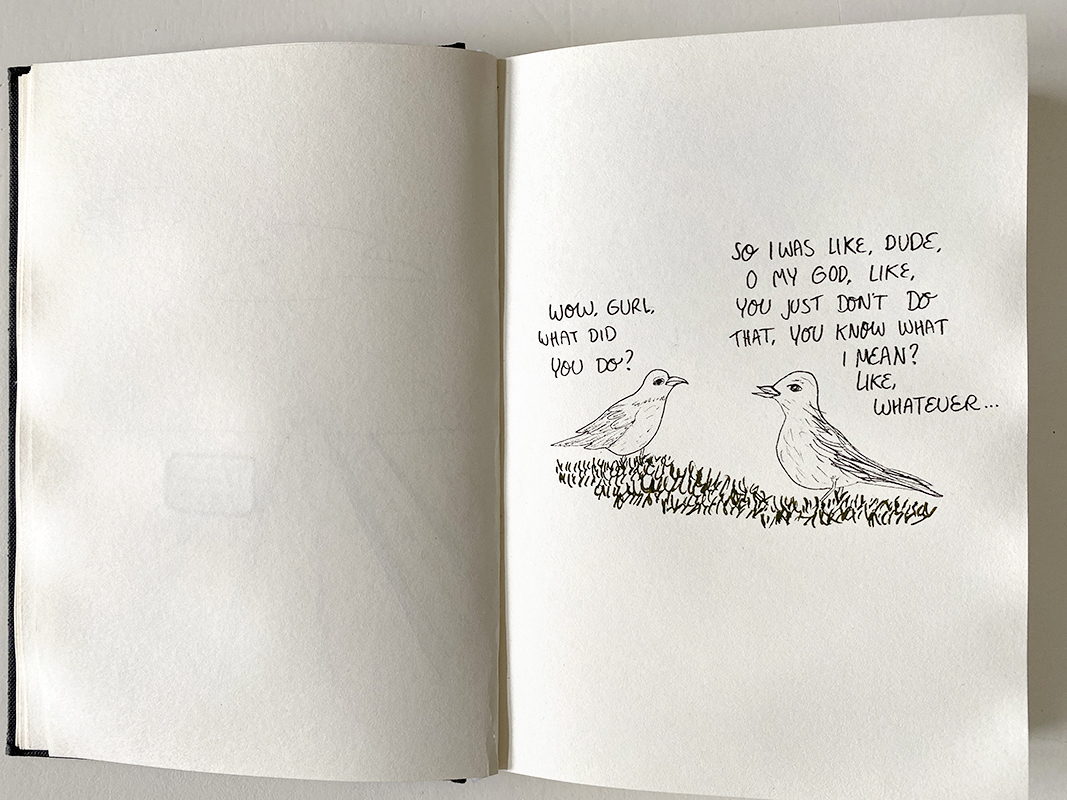 WOW, GURL,
WHAT DID
YOU DO?
SO I WAS LIKE, DUDE,
O MY GOD, LIKE,
YOU JUST DON'T DO
THAT, YOU KNOW WHAT
I MEAN?
LIKE,
WHATEVER...